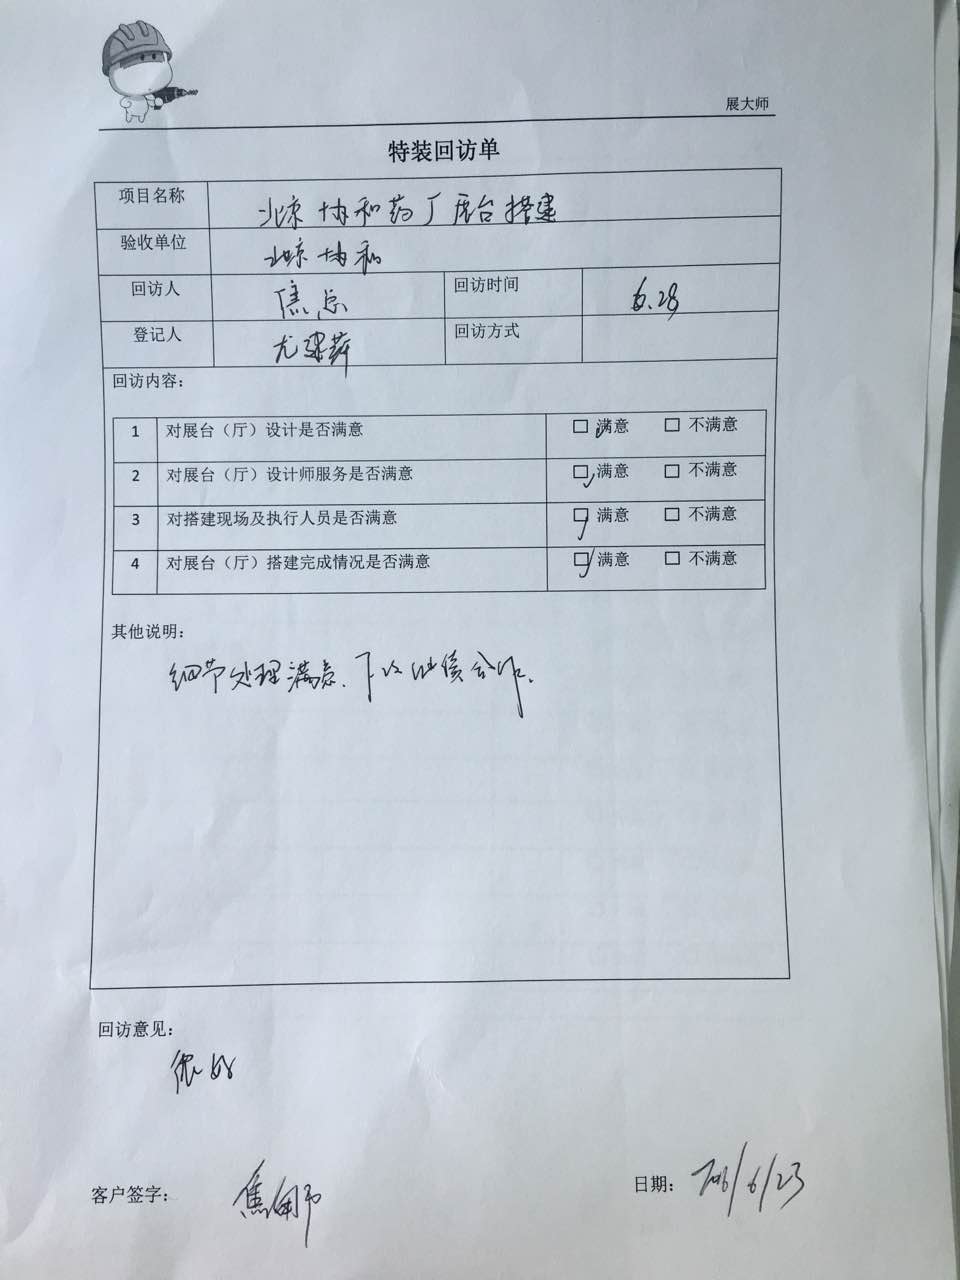 展大师
特装回访单
项目名称 北京协和药厂展台搭建
验收单位 北京协和
回访人 焦总 回访时间 6.28
登记人 尤建 回访方式
回访内容：
1 对展台（厅）设计是否满意 □ 满意 □ 不满意
2 对展台（厅）设计师服务是否满意 □ 满意 □ 不满意
3 对搭建现场及执行人员是否满意 □ 满意 □ 不满意
4 对展台（厅）搭建完成情况是否满意 □ 满意 □ 不满意
其他说明：
细节处理满意、下次继续合作.
回访意见：
很好
客户签字： 焦 日期： /6/23